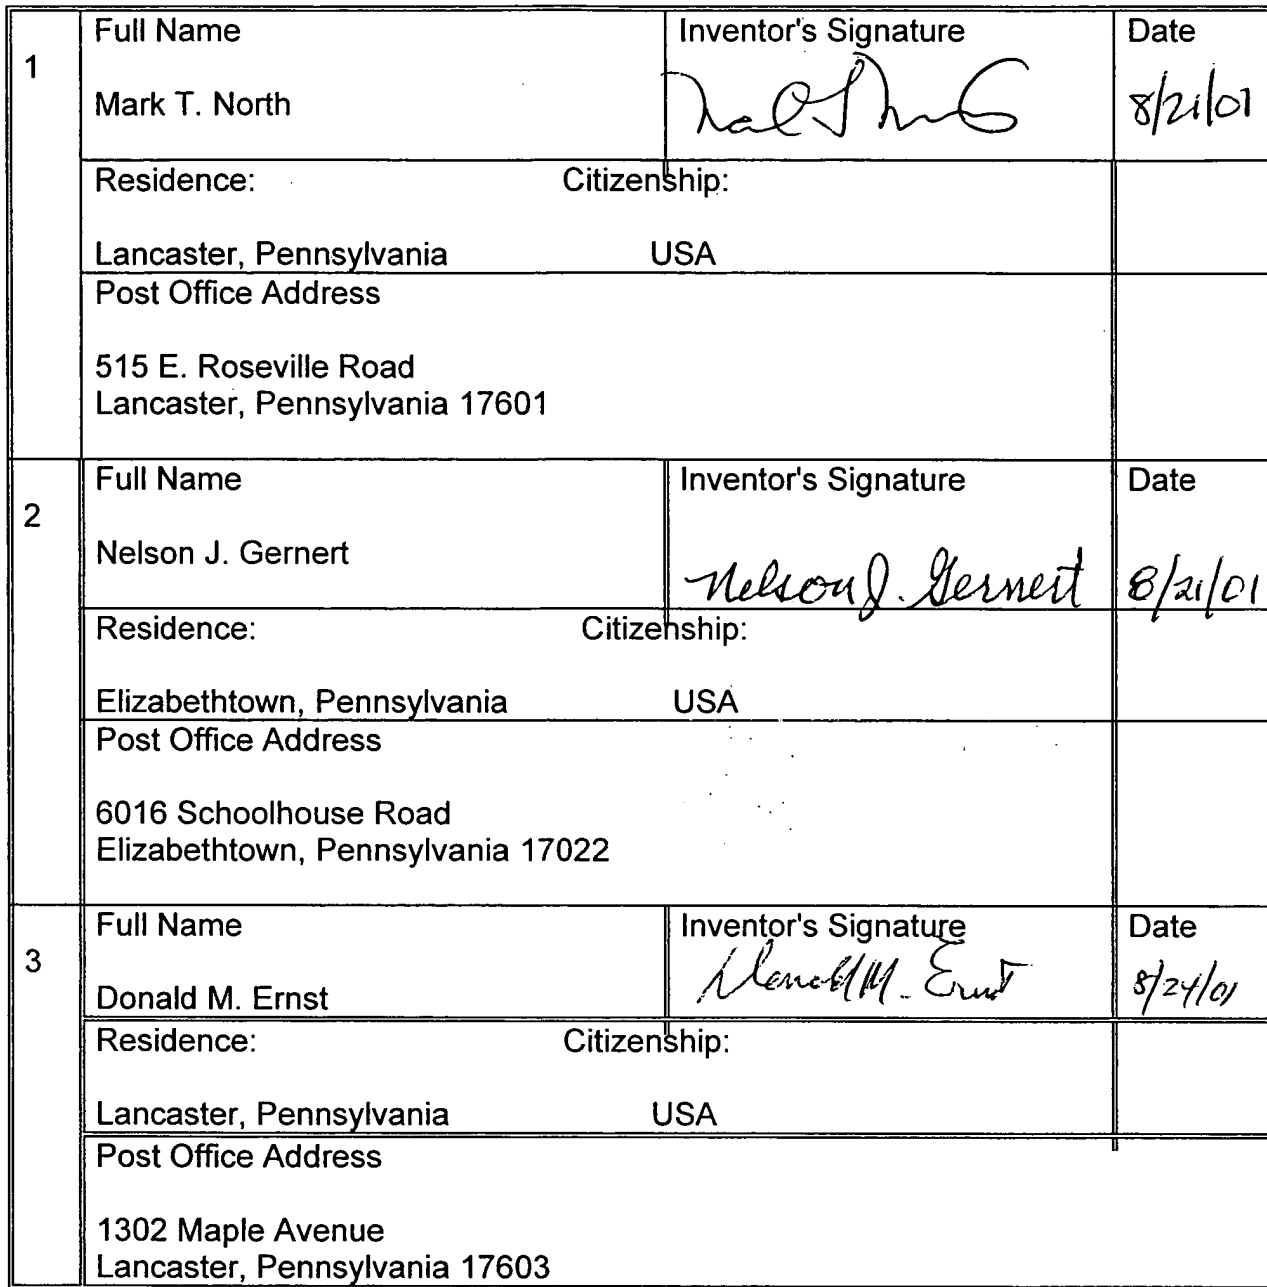 1
Full Name
Inventor's Signature
Date
Mark T. North
8/21/01
Residence: Citizenship:
Lancaster, Pennsylvania USA
Post Office Address
515 E. Roseville Road
Lancaster, Pennsylvania 17601
2
Full Name
Inventor's Signature
Date
Nelson J. Gernert
Nelson J. Gernert
8/21/01
Residence: Citizenship:
Elizabethtown, Pennsylvania USA
Post Office Address
6016 Schoolhouse Road
Elizabethtown, Pennsylvania 17022
3
Full Name
Inventor's Signature
Date
Donald M. Ernst
Donald M. Ernst
8/24/01
Residence: Citizenship:
Lancaster, Pennsylvania USA
Post Office Address
1302 Maple Avenue
Lancaster, Pennsylvania 17603